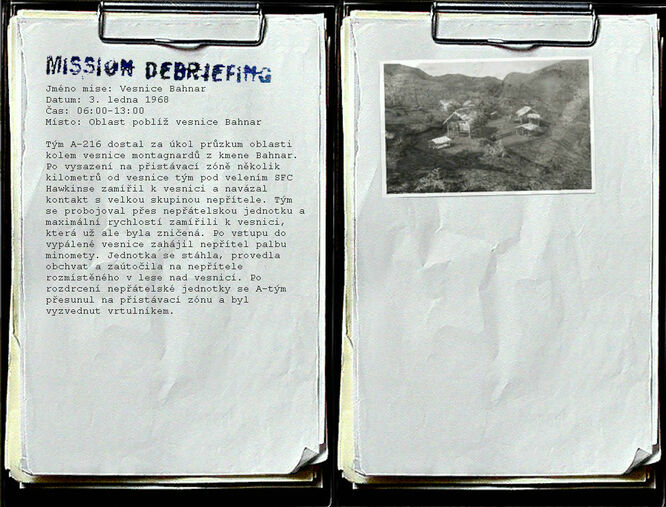 MISSION DEBRIEFING
Jméno mise: Vesnice Bahnar
Datum: 3. ledna 1968
Čas: 06:00-13:00
Místo: Oblast poblíž vesnice Bahnar
Tým A-216 dostal za úkol průzkum oblasti
kolem vesnice montagnardů z kmene Bahnar.
Po vysazení na přistávací zóně několik
kilometrů od vesnice tým pod velením SFC
Hawkinse zamířil k vesnici a navázal
kontakt s velkou skupinou nepřítele. Tým
se probojoval přes nepřátelskou jednotku a
maximální rychlostí zamířili k vesnici,
která už ale byla zničená. Po vstupu do
vypálené vesnice zahájil nepřítel palbu
minomety. Jednotka se stáhla, provedla
obchvat a zaútočila na nepřítele
rozmístěného v lese nad vesnicí. Po
rozdrcení nepřátelské jednotky se A-tým
přesunul na přistávací zónu a byl
vyzvednut vrtulníkem.